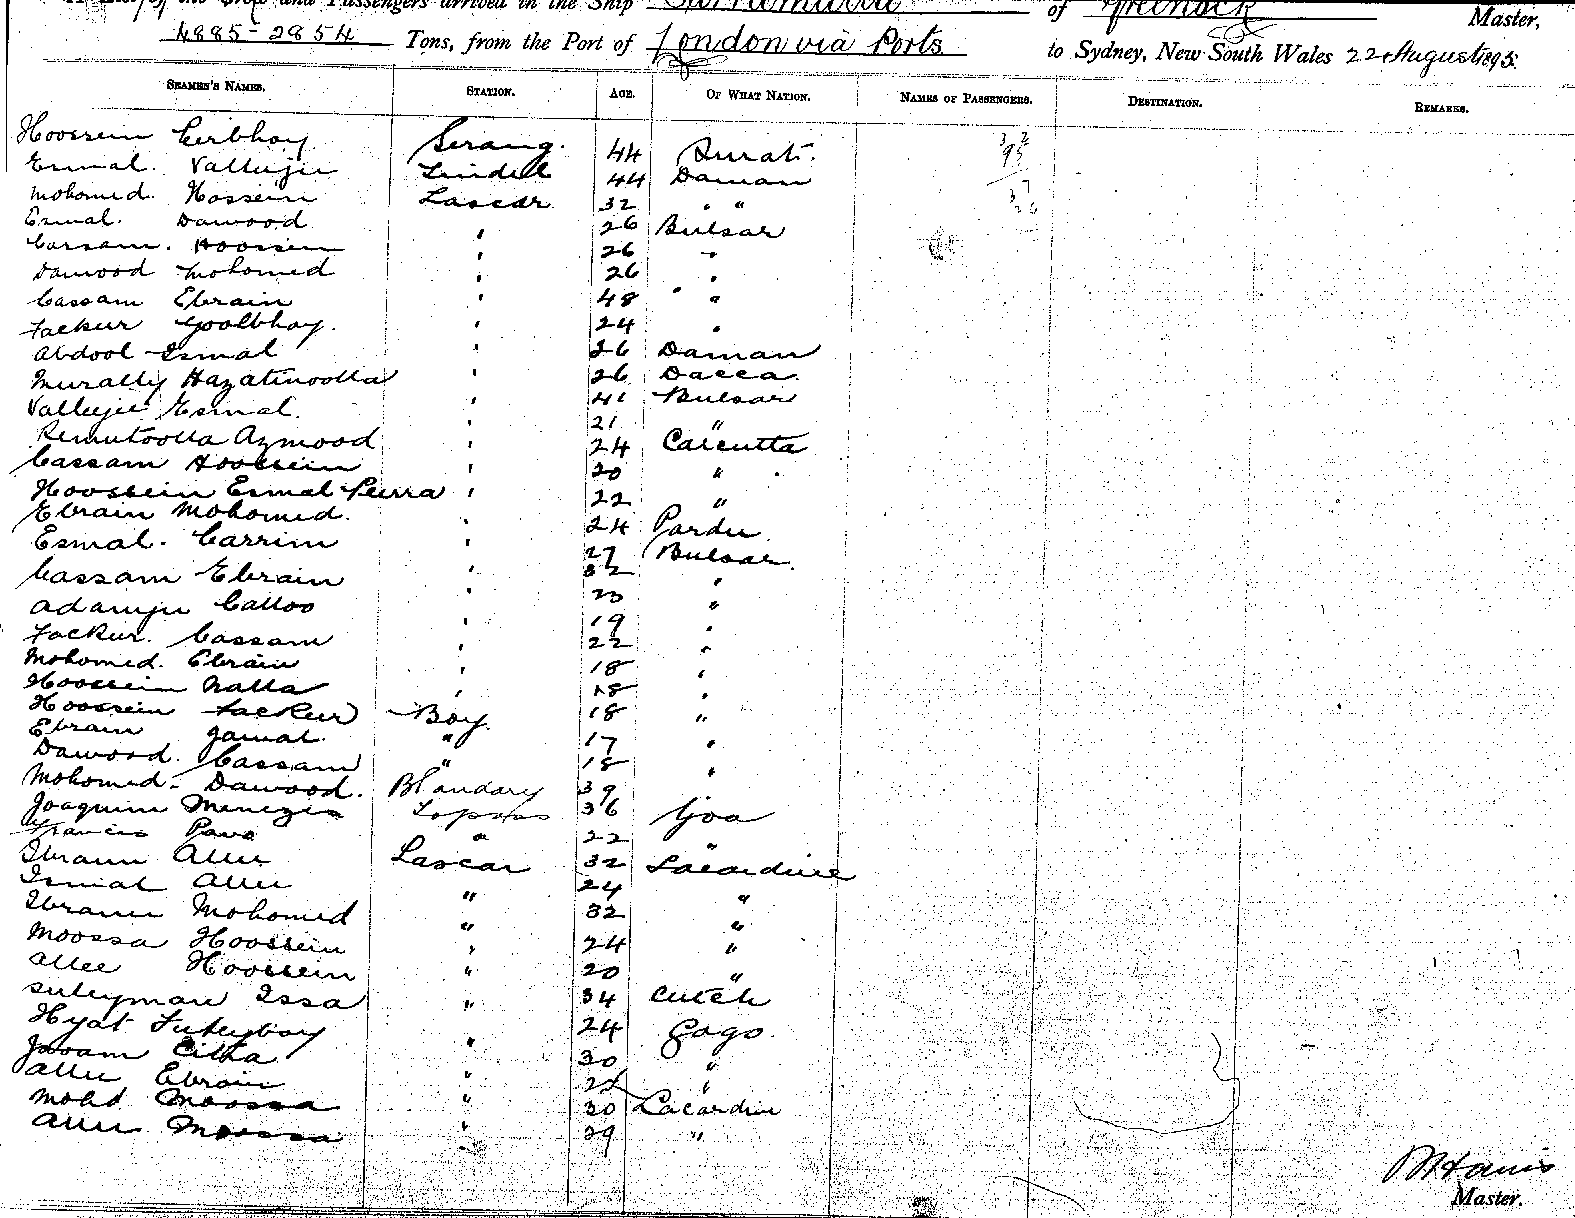 of the Crew and Passengers arrived in the Ship of Greenock Master,
4885-2854 Tons, from the Port of London via Ports to Sydney, New South Wales 22 August 1895
SEAMEN'S NAMES. STATION. AGE. OF WHAT NATION. NAMES OF PASSENGERS. DESTINATION. REMARKS.
Hoossein Serang. 44 Surat.
Esmal. Vallujee Tindell 44 Daman
Mohomed. Hossein Lascar 32 " "
Esmal. Dawood " 26 Bulsar
Cassam. Hoossein " 26 "
Dawood Mohomed " 26 "
Cassam Ebrain " 48 " "
Fackur Goolbhoy. " 24 "
Abdool Ismal " 26 Daman
Muratty Hazatinoolla " 26 Dacca.
Vallujee Esmal. " 41 Bulsar
Remutoolla Azmood " 21 "
Cassam Hoossein " 24 Calcutta
Hoossein Esmal " 20 "
Ebrain Mohomed. " 22 "
Esmal. Carrim " 24 Pardu
27 Bulsar.
Cassam Ebrain " 32 "
Adamjee Calloo " 23 "
Fackur. Cassam " 19 "
Mohomed. Ebrain " 22 "
Hoossein Nalla " 18 "
Hoossein Fackur Boy. 18 "
Ebrain Jamal. " 17 "
Dawood. Cassam " 18 "
Mohomed. Dawood. Bhandary 39
Joaquim Menezes Topass 36 Goa
Francis " 22 "
Ibraim Allee Lascar 32 Lacardive
Ismal Allee " 24 "
Ibraim Mohomed " 32 "
Moossa Hoossein " 24 "
Allee Hoossein " 20 "
Suleyman Issa " 34 Cutch
Hyat " 24 Gogo.
" 30 "
Allee Ebrain " "
Mohd Moossa " 30 Lacardive
Allee Moossa " 29 "
Master.